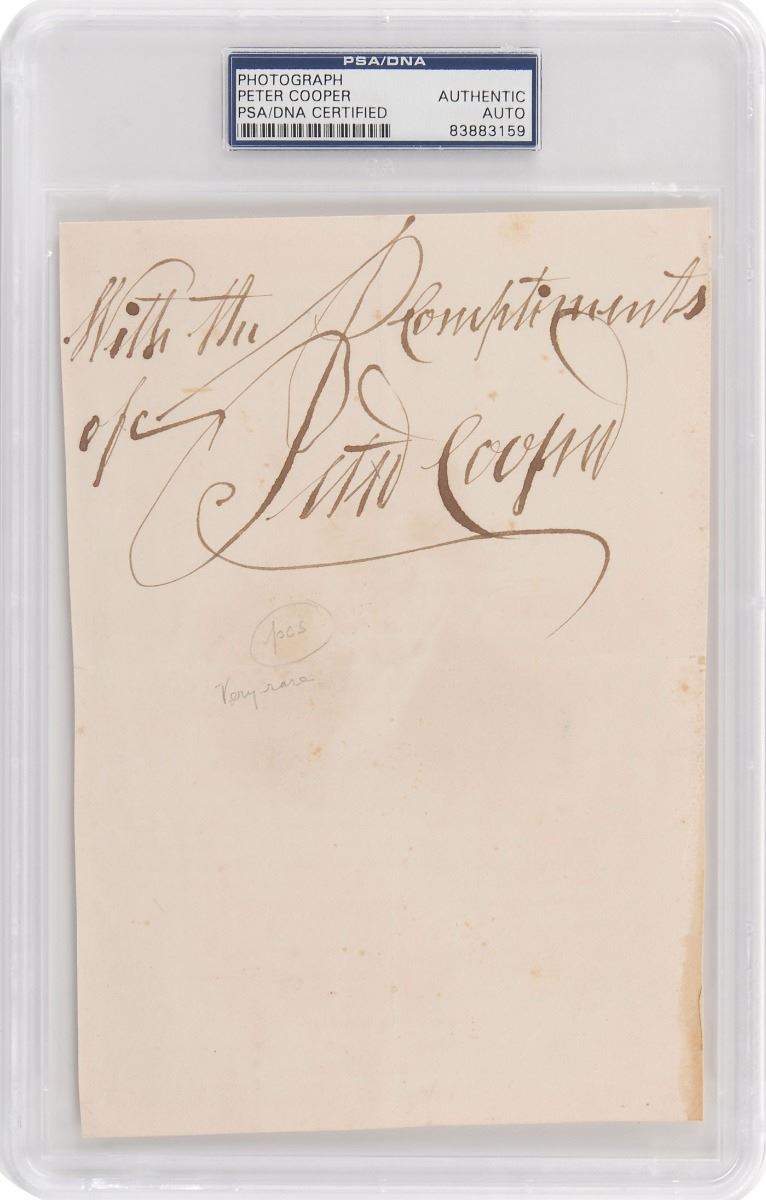 PSA/DNA
PHOTOGRAPH
PETER COOPER AUTHENTIC
PSA/DNA CERTIFIED AUTO
83883159
With the Compliments
of
Peter Cooper
pcs
Very rare